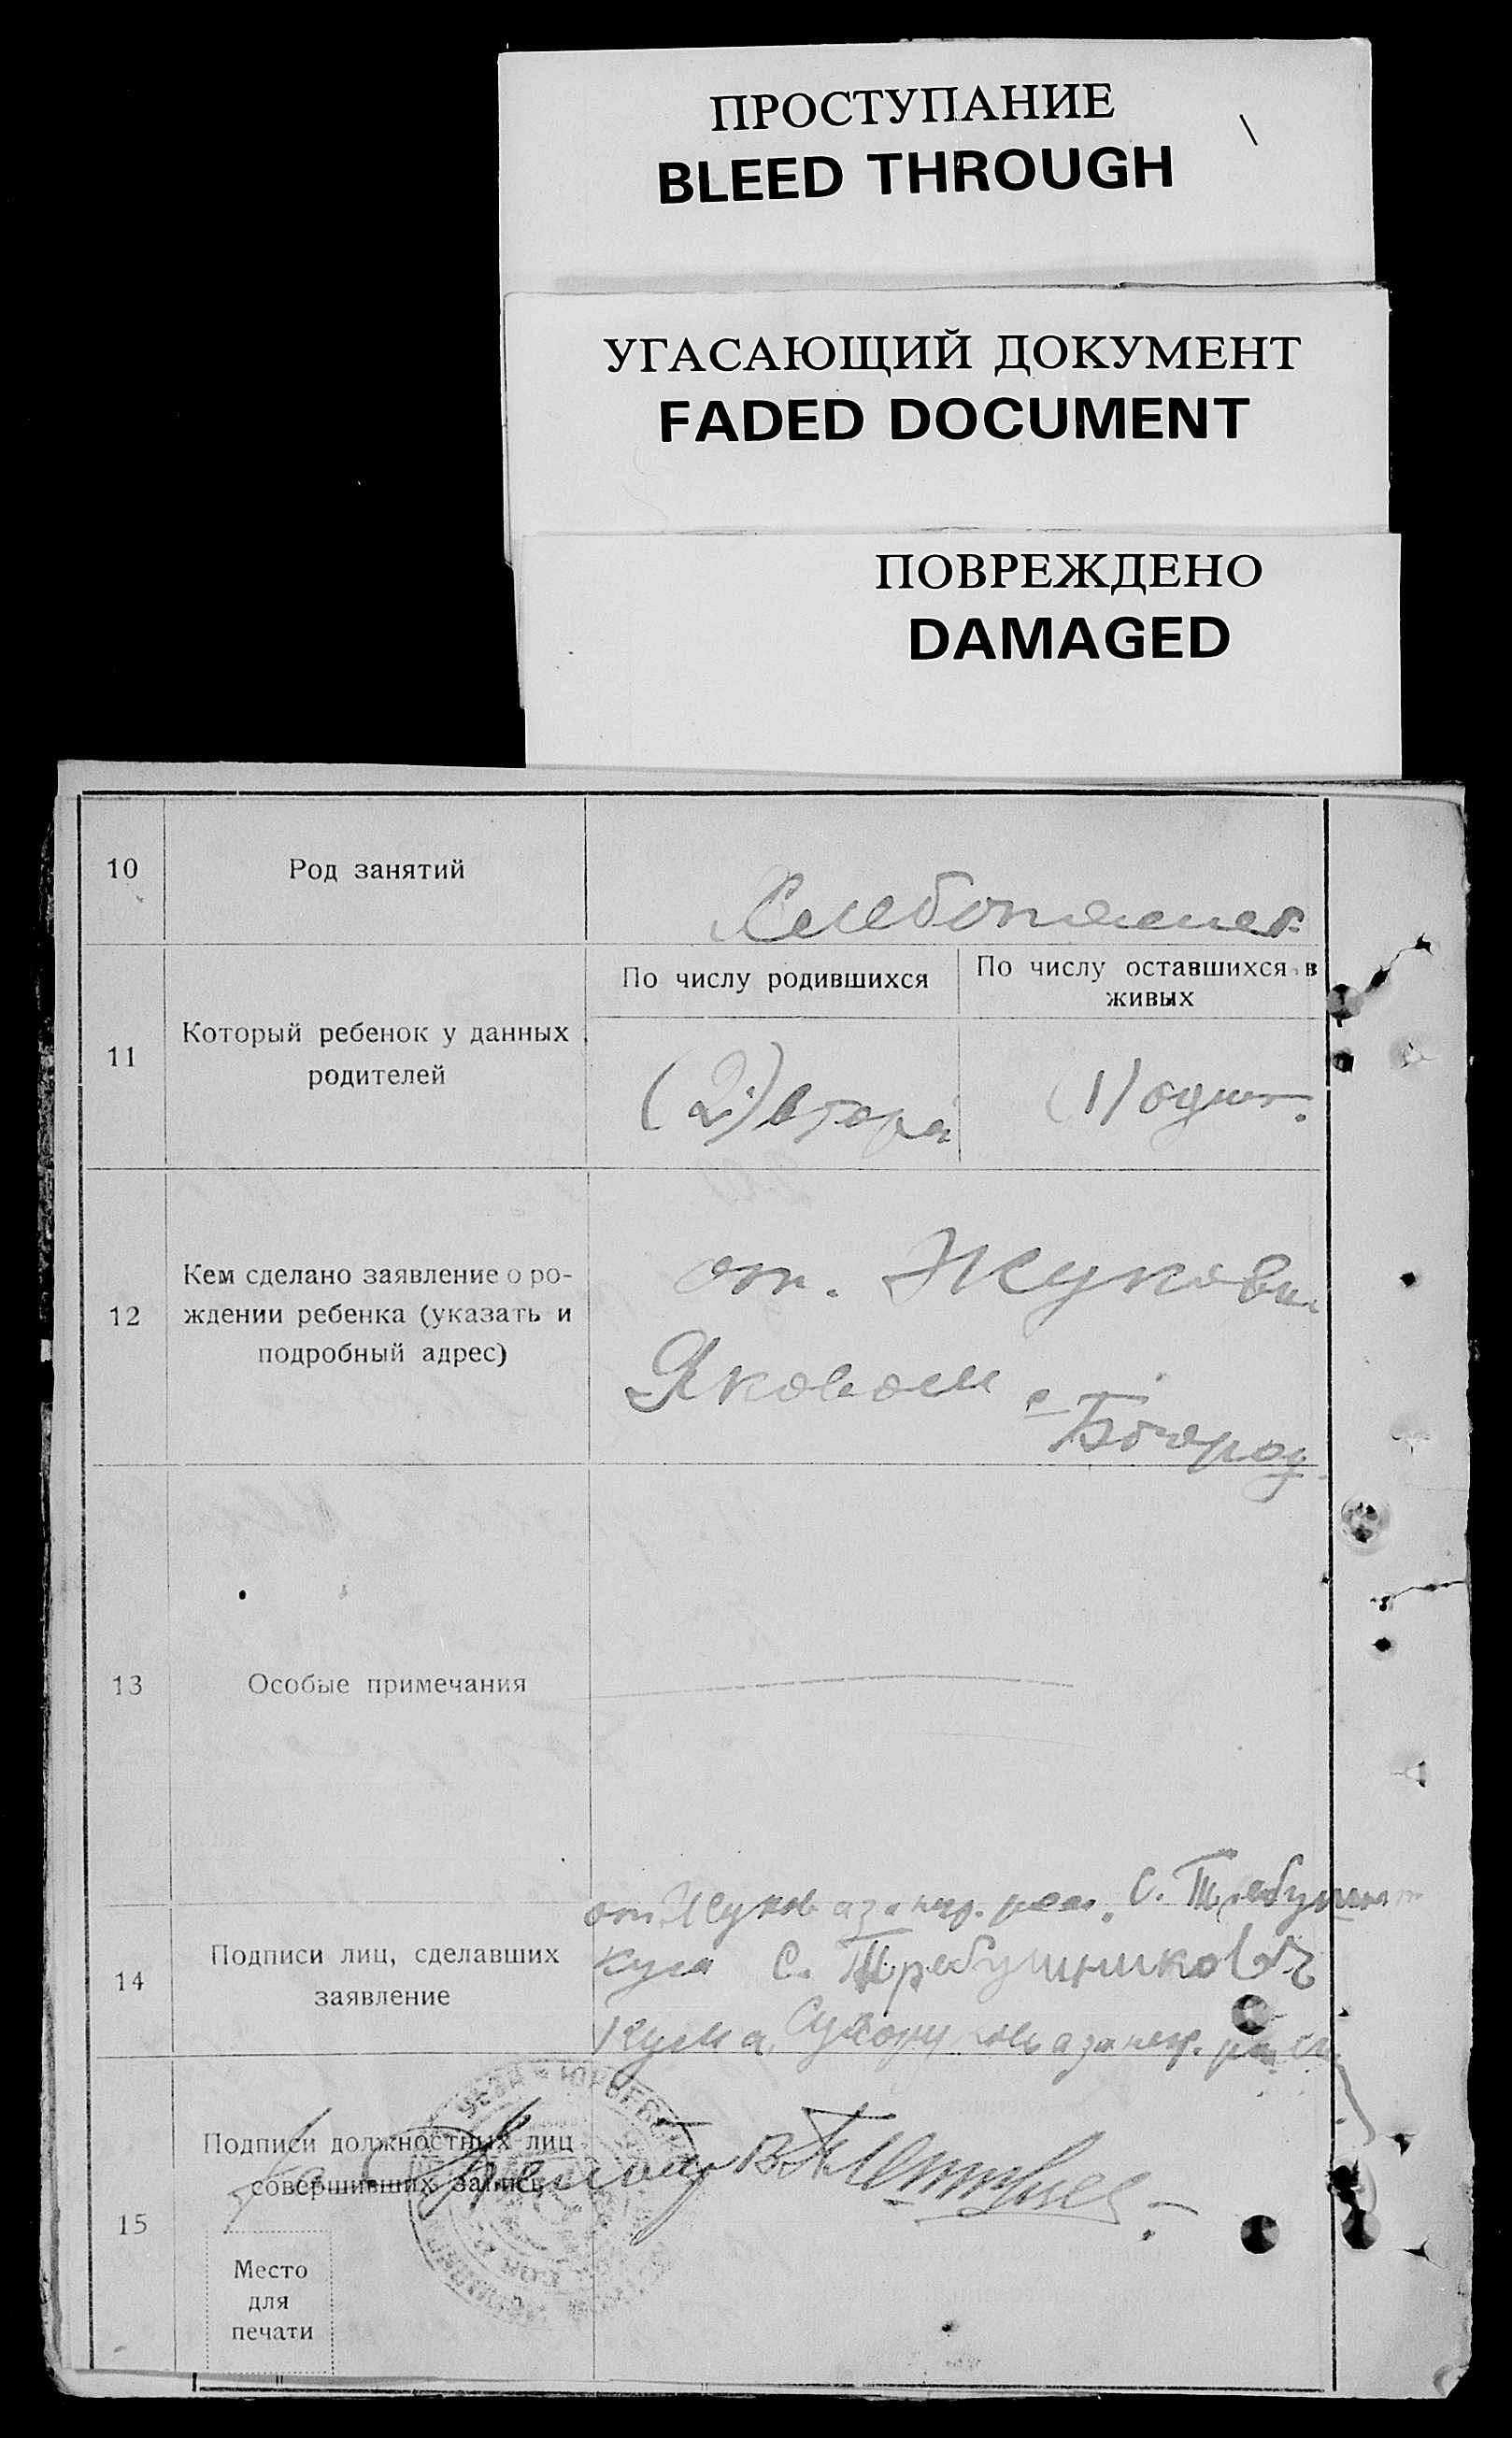 ПРОСТУПАНИЕ
BLEED THROUGH
УГАСАЮЩИЙ ДОКУМЕНТ
FADED DOCUMENT
ПОВРЕЖДЕНО
DAMAGED
10
Род занятий
Хлебопашест.
11
Который ребенок у данных
родителей
По числу родившихся
По числу оставшихся в
живых
(2) втора
(1) один.
12
Кем сделано заявление о ро-
ждении ребенка (указать и
подробный адрес)
от. Жуковым
Яковом с Богород
13
Особые примечания
14
Подписи лиц, сделавших
заявление
от. Жуков а за негр. рас. С. Требушни
Кум С. Требушников
Кума, Сухору кова за негр. рас
15
Подписи должностных лиц
совершивших запись
Место
для
печати